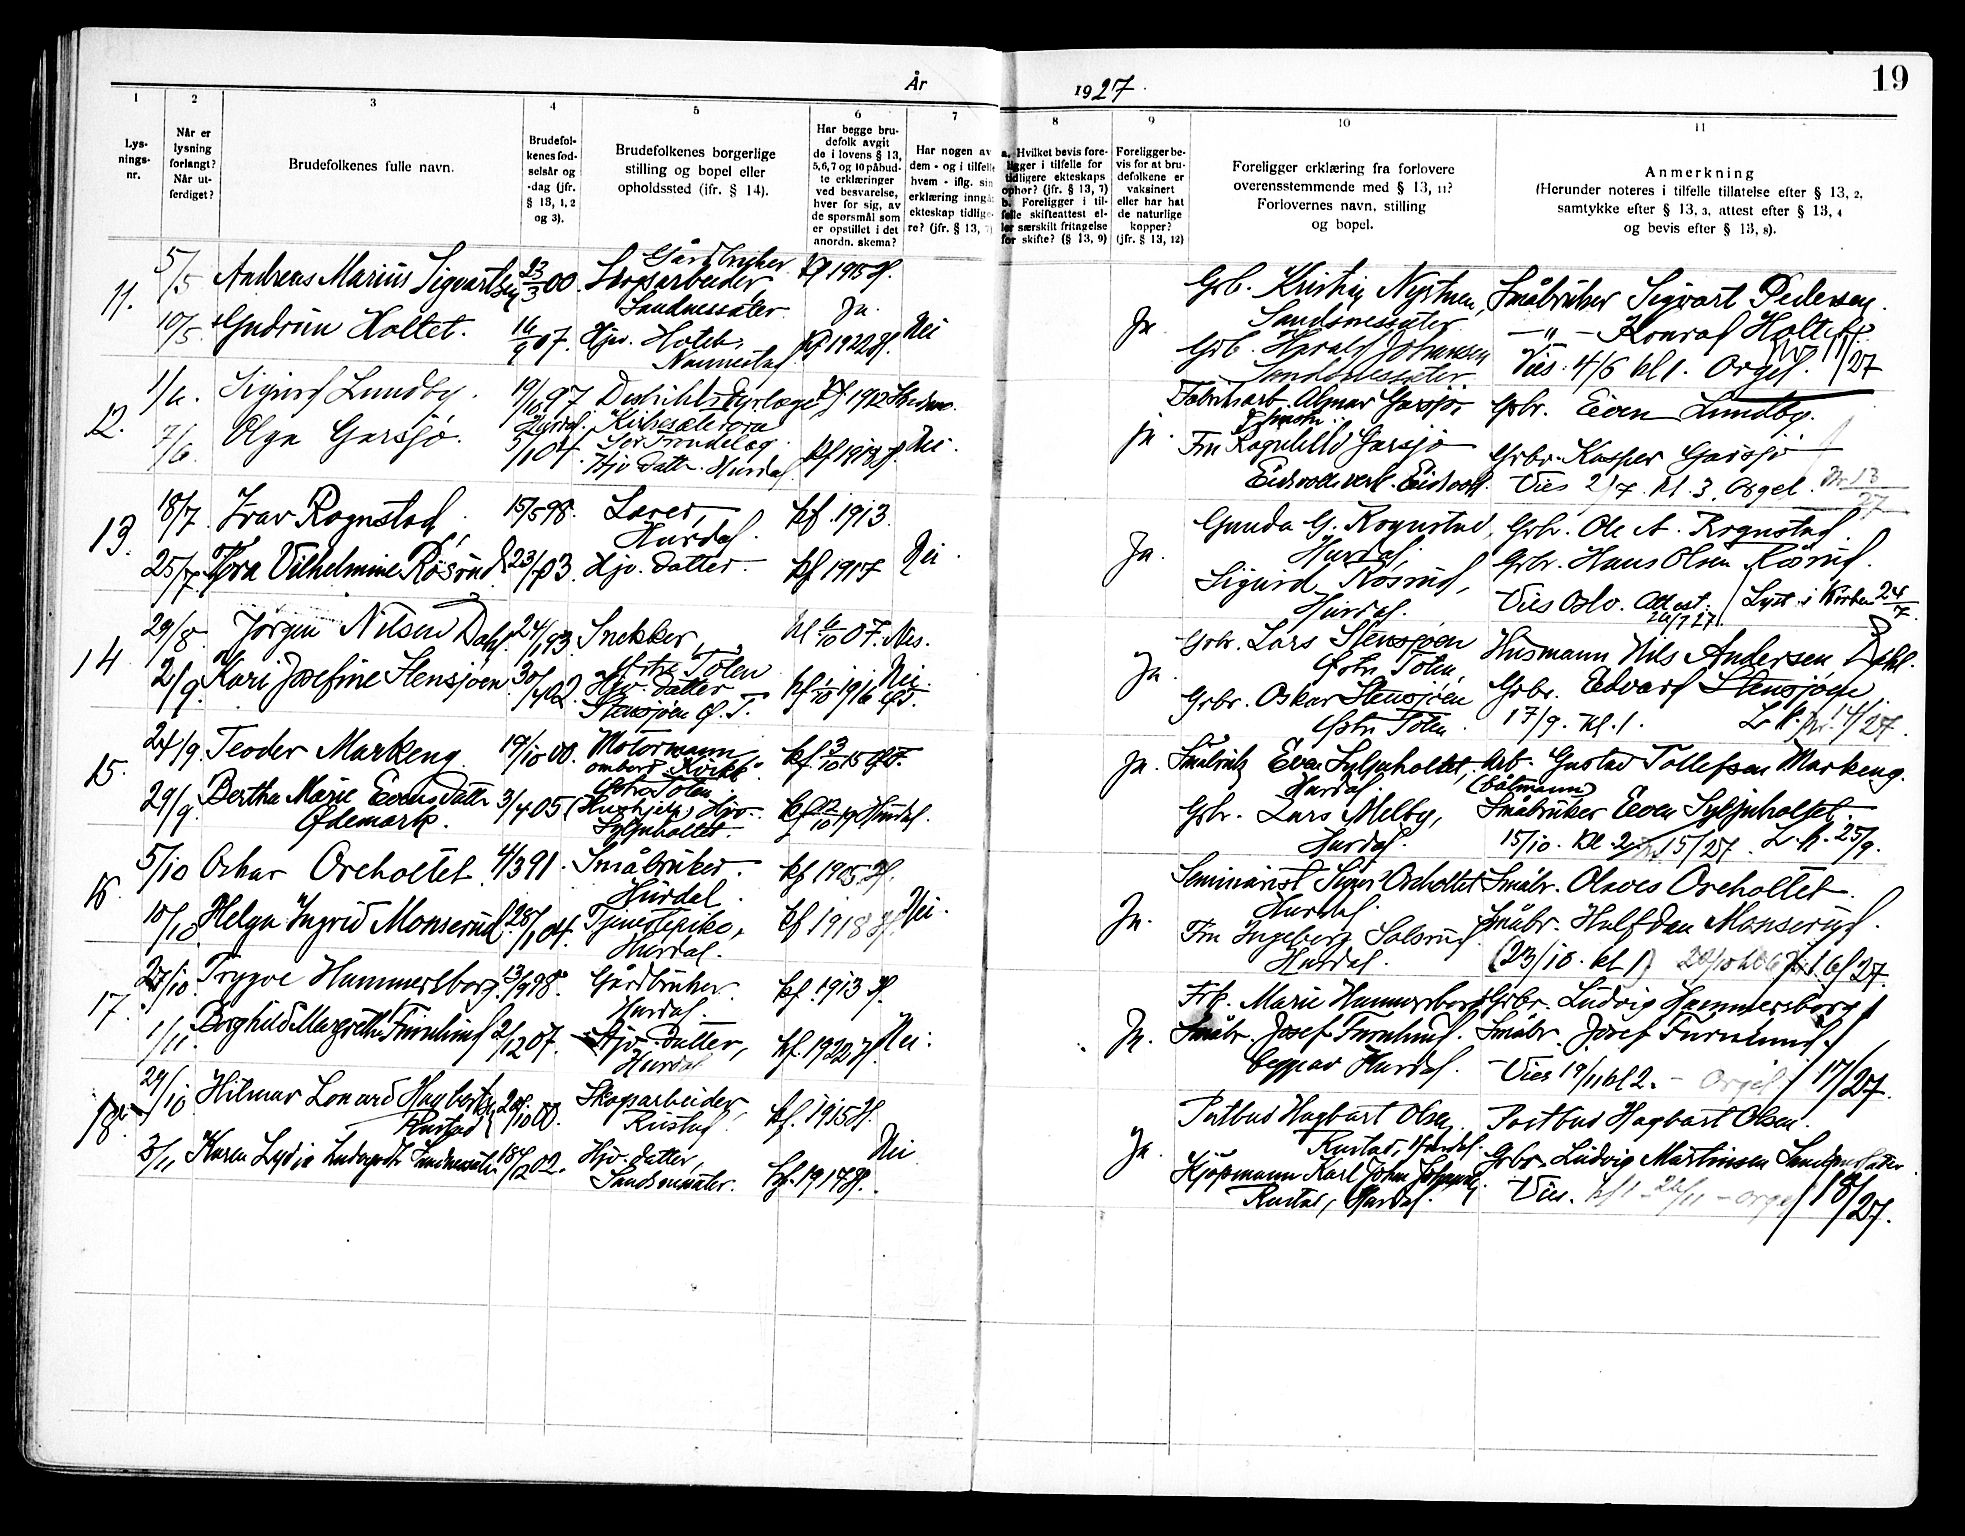 År 1927. 19
1 2 3 4 5 6 7 8 9 10 11
Lys-
nings-
nr.
Når er
lysning
forlangt?
Når ut-
ferdiget?
Brudefolkenes fulle navn.
Brudefol-
kenes fød-
selsår og
-dag (jfr.
§ 13, 1, 2
og 3).
Brudefolkenes borgerlige
stilling og bopel eller
opholdssted (jfr. § 14).
Har begge bru-
defolk avgit
de i lovens § 13,
5, 6, 7 og 10 påbud-
te erklæringer
ved besvarelse,
hver for sig, av
de spørsmål som
er opstillet i det
anordn. skema?
Har nogen av
dem - og i tilfelle
hvem - iflg. sin
erklæring inngåt
ekteskap tidlige-
re? (jfr. § 13, 7)
a. Hvilket bevis fore-
ligger i tilfelle for
tidligere ekteskaps
ophør? (jfr. § 13, 7)
b. Foreligger i til-
felle skifteattest el-
ler særskilt fritagelse
for skifte? (§ 13, 9)
Foreligger be-
vis for at bru-
defolkene er
vaksinert
eller har hat
de naturlige
kopper?
(jfr. § 13, 12)
Foreligger erklæring fra forlovere
overensstemmende med § 13, 11?
Forlovernes navn, stilling
og bopel.
Anmerkning
(Herunder noteres i tilfelle tillatelse efter § 13, 2,
samtykke efter § 13, 3, attest efter § 13, 4
og bevis efter § 13, 8).
11. 5/5 Andreas Marius Sigvartsen 23/3 00. Gårdbruker
Skogsarbeider
Sandnessæter
Kf 1915 H.
Ja.
10/5 Gudrun Holtet. 16/9 07. Hjv. Holtet,
Nannestad
Kf 1922 H. Nei
Ja. Grb. Kristian Nystuen,
Sandsnessæter
Grb. Harald Johansen
Sandsnessæter.
Småbruker Sigvart Pedersen.
— " — Konrad Holtet
Vies 4/6 kl 1. Orgel. 11/27
12. 1/6 Sigurd Lundby. 19/10 97 Distriktsdyrlæge
Hurdal. Kirkesæterøra
Sør Trøndelag.
Kf 1912
7/6 Olga Garsjø. 5/1 04 Hjv. datter. Hurdal Kf 1918 H. Nei.
ja. Fabrikarb. Almar Garsjø,
Fru Ragnhild Garsjø
Eidsvoll verk. Eidsvoll.
Grbr. Even Lundby.
Grbr. Kasper Garsjø
Vies 2/7 kl. 3. Orgel. Nr. 13/27
13. 18/7 Ivar Rognstad 15/5 98. Lærer,
Hurdal.
Kf. 1913.
25/7 Thora Vilhelmine Røsrud 23/7 03. Hjv. datter Kf 1917 Nei.
Ja. Gunda G. Rognstad,
Hurdal.
Sigurd Røsrud,
Hurdal.
Grbr. Ole A. Rognstad.
Grbr. Hans Olsen Røsrud.
Vies Oslo. Attest Lyst i Kirken 24/7
26/7 27.
14 29/8 Jørgen Nilsen Dahl. 24/1 93 Snekker,
Østre Toten
Kf 6/10 07. Nes.
2/9 Kari Josefine Stensjøen 30/4 02 Hjv. datter
Stensjøen Ø. T.
Kf 1/10 1916 ØT. Nei.
Ja. Grbr. Lars Stensjøen
Østre Toten,
Grbr. Oskar Stensjøen
Østre Toten.
Husmann Nils Andersen
Grbr. Edvard Stensjøen,
17/9. kl. 1. 14/27.
15. 24/9 Teoder Markeng. 19/10 00. Motormann
ombord "Kvikk"
Østre Toten
Kf. 3/10 15 ØT.
29/9 Bertha Marie Evensdatter
Ødemark.
3/4 05 (Hushjelp) Hjv.
Syljuholtet
Ja. Småbruk. Even Syljuholtet,
Hurdal.
Grbr. Lars Melby,
Hurdal.
Arb. Gustav Tollefsen Markeng.
(båtmann)
Småbruker Even Syljuholtet.
15/10. Kl. 2. 15/27. L. k. 25/9.
16. 5/10 Oskar Oreholtet. 4/3 91. Småbruker.
Hurdal
Kf 1905. H.
10/10 Helga Ingrid Monserud. 28/1 04. Tjenestepike,
Hurdal.
Kf 1918 H. Nei.
Ja. Seminarist Signe Oreholtet
Hurdal.
Fru Ingeborg Solsrud
Hurdal.
Småbr. Olaves Oreholtet.
Småbr. Halfdan Monserud.
(23/10. kl 1) 16/27.
17. 27/10 Trygve Hammersborg. 13/9 98. Gårdbruker.
Hurdal.
Kf. 1913 H.
1/11 Borghild Margrethe Furulund 2/12 07. Hjv. datter,
Hurdal
Kf. 1922 H. Nei.
Ja. Frk. Marie Hammersborg
Småbr. Josef Furulund.
begge av Hurdal.
Grbr. Ludvig Hammersborg
Småbr. Josef Furulund.
Vies 19/11 kl 2. — Orgel. 17/27.
18. 29/10 Hilmar Lenard Hagbartsen
Rustad
20/10 00. Skogsarbeider,
Rustad
Kf. 1915 H.
3/11 Karen Lydia Sandsnessæter 18/12 02. Hjv. datter,
Sandsnessæter.
Kf. 1917 H. Nei
Ja. Postbud Hagbart Olsen
Rustad, Hurdal.
Kjøpmann Karl Johan Johansen
Rustad, Hurdal.
Postbud Hagbart Olsen.
Grbr. Ludvig Martinsen Sandsnessæter.
Vies. kl 1 26/11 — orgel 18/27.